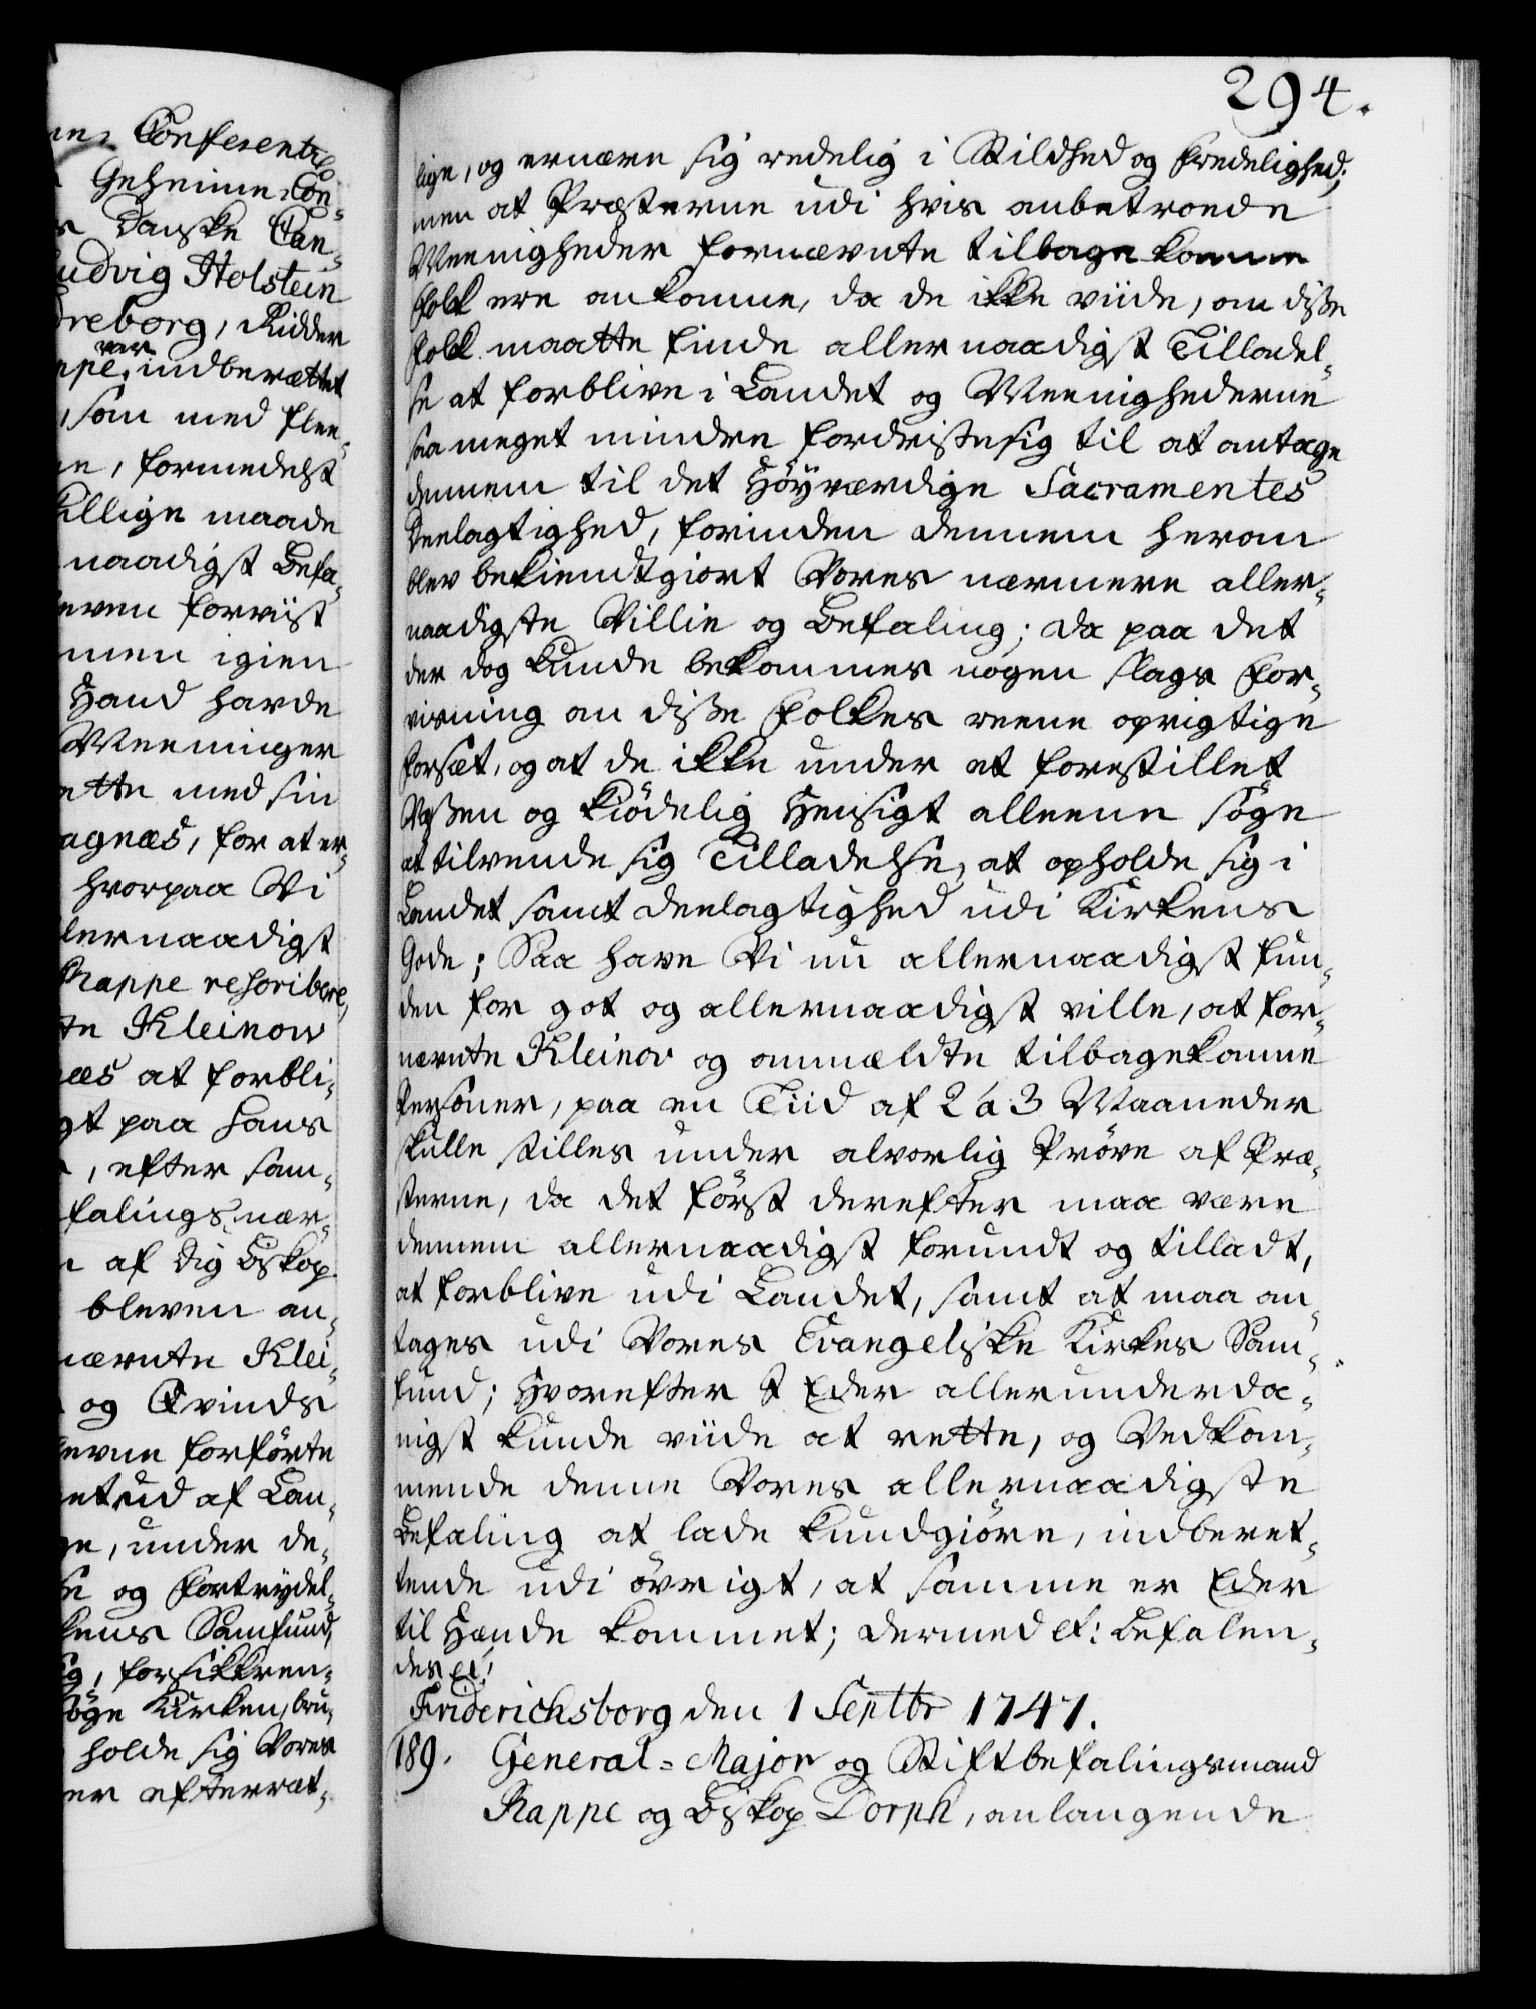 ne Conferentz-
Geheime Con-
s Danske Can-
Ludvig Holstein
dreborg, Ridder
ppe, indberættet
ver
, som med flee-
ne, formedelst
killige maade
naadigst Befa-
leven forviist
men igien
Hand havde
Meeninger
ette med sin
agnæs, for at er-
hvorpaa Vi
llernaadigst
Rappe rescribere,
te Kleinow
næs at forbli-
gt paa hans
, efter sam-
falings nær-
n af dig Biskop
bleven an-
nævnte Klei-
og Qvinds
levne forførte
et ud af Lan-
ge, under de-
se og fortrydel-
kens Samfund,
ig, forsikkren-
søge Kirken, bru-
holde sig Vores
er efterret-
294.
lige, og ernære sig redelig i Stildhed og fredelighed;
men at Præsterne udi hvis anbetroede
Meenigheder fornævnte tilbagekomne
folk ere ankomne, da de ikke viide, om disse
folk maatte finde allernaadigst Tilladel-
se at forblive i Landet og Meenighederne
saa meget mindre fordriste sig til at antage
dennem til det Höyværdige Sacramentes
Deelagtighed, forinden dennem herom
blev bekiendtgiort Vores nærmere aller-
naadigste Villie og Befaling; da paa det
der dog kunde bekommes nogen slags for-
visning om disse folkes reene oprigtige
forsæt, og at de ikke under et forestillet
Væsen og kiödelig Hensigt alleene söge
at tilvende sig Tilladelse, at opholde sig i
Landet samt deelagtighed udi Kirkens
Gode; Saa have Vi nu allernaadigst fun-
den for got og allernaadigst ville, at for-
nævnte Kleinow og anmældte tilbagekomne
Personer, paa en Tiid af 2 a 3 Maaneder
skulle stilles under alvorlig Pröve af Præ-
sterne, da det först derefter maa være
dennem allernaadigst forundt og tilladt,
at forblive udi Landet, samt at maa an-
tages udi Vores Evangeliske Kirkes Sam-
fund; Hvorefter I Eder allerunderda-
nigst kunde viide at rette, og Vedkom-
mende denne Vores allernaadigste
Befaling at lade kundgiöre, indberet-
tende udi övrigt, at samme er Eder
til Hænde kommet; dermed et: Befalen-
des et:
Friderichsborg den 1 Septbr 1747.
189. General-Major og Stiftbefalingsmand
Rappe og Biskop Dorph, anlangende